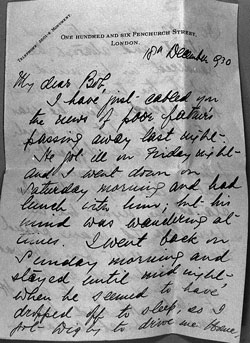 TELEPHONE: 2002-4 MONUMENT
ONE HUNDRED AND SIX FENCHURCH STREET,
LONDON.
18th December 930
My dear Bob,
I have just cabled you
the news of poor father's
passing away last night -
He got ill on Friday night -
and I went down on
Saturday morning and had
lunch with him; but his
mind was wandering at
times. I went back on
Sunday morning and
stayed until mid night -
when he seemed to have
dropped off to sleep, so I
got to drive me home